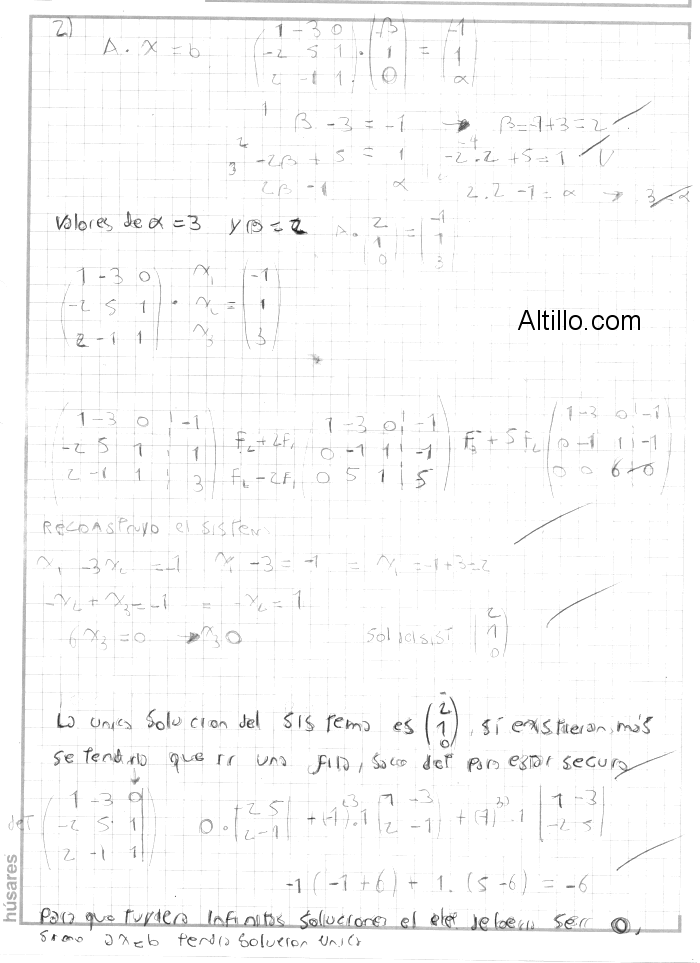 2)
A . X = b   (1 -3 0 / -2 5 1 / 2 -1 1) . (β / 1 / 0) = (-1 / 1 / α)
β - 3 = -1 → β = -1+3 = 2
-2β + 5 = 1   -2.2 + 5 = 1
2β - 1   α   2.2 - 1 = α → 3 = α
Valores de α = 3 y β = 2   A . (2 / 1 / 0) = (-1 / 1 / 3)
(1 -3 0 / -2 5 1 / 2 -1 1) . x1 / x2 / x3 = (-1 / 1 / 3)
Altillo.com
(1 -3 0 | -1 / -2 5 1 | 1 / 2 -1 1 | 3) F2+2F1 F2-2F1 (1 -3 0 | -1 / 0 -1 1 | -1 / 0 5 1 | 5) F3 + 5F2 (1 -3 0 | -1 / 0 -1 1 | -1 / 0 0 6 0)
RECONSTRUYO el sistem
x1 - 3x2 = -1   x1 - 3 = -1 = x1 = -1+3=2
-x2 + x3 = -1 = -x2 = 1
6x3 = 0 → x3 0   (2 / 1 / 0)
La unica Solucion del SISTema es (2 / 1 / 0), si existieran más
se tendria que ir una fila, saco det para estar segura
det (1 -3 0 / -2 5 1 / 2 -1 1)   0 . |2 5 / 2 -1| + (-1) . 1 |1 -3 / 2 -1| + (-1) . 1 |1 -3 / -2 5|
-1 (-1+6) + 1. (5-6) = -6
Para que tuviera infinitas soluciones el det deberia ser 0,
solucion unica
húsares